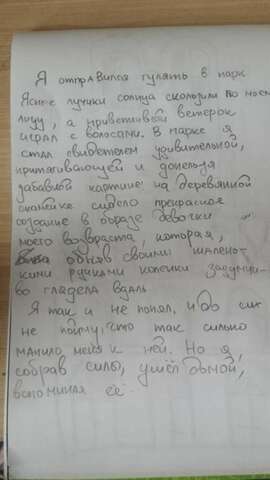 Я отправился гулять в парк
Ясные лучики солнца скользили по моему
лицу, а приветливый ветерок
играл с волосами. В парке я
стал свидетелем удивительной,
притягивающей и донельзя
забавной картине: на деревянной
скамейке сидело прекрасное
создание в образе девочки
моего возвраста, которая,
обняв своими малень-
кими ручками коленки задумчи-
во глядела вдаль
Я так и не понял, и до сих
не пойму, что так сильно
манило меня к ней. Но я,
собрав силы, ушёл домой,
вспоминая её.